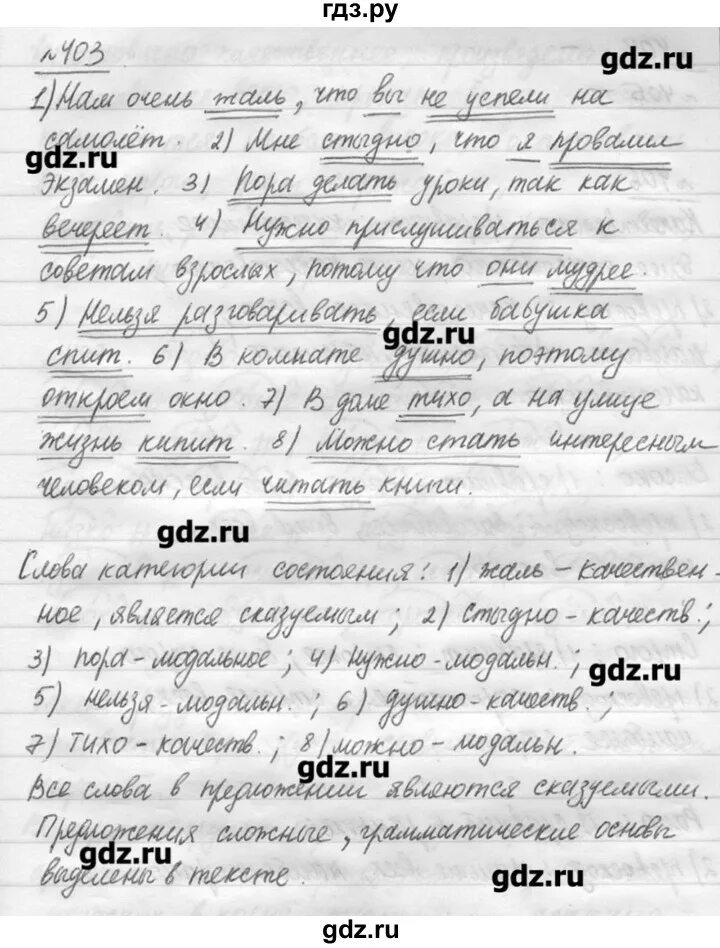 гдз.ру
№403
gdz.ru
1) Нам очень жаль, что вы не успели на
самолёт. 2) Мне стыдно, что я провалил
gdz.ru
экзамен. 3) Пора делать уроки, так как
вечереет. 4) Нужно прислушиваться к
советам взрослых, потому что они мудрее.
5) Нельзя разговаривать, если бабушка
gdz.ru
спит. 6) В комнате душно, поэтому
откроем окно. 7) В доме тихо, а на улице
жизнь кипит. 8) Можно стать интересным
человеком, если читать книги.
gdz.ru
Слова категории состояния: 1) жаль - качествен-
ное, является сказуемым; 2) стыдно - качеств.;
3) пора - модальное; 4) нужно - модальн.;
gdz.ru
5) нельзя - модальн.; 6) душно - качеств.;
7) тихо - качеств.; 8) можно - модальн.
gdz.ru
Все слова в предложении являются сказуемыми.
Предложения сложные, грамматические основы
gdz.ru
выделены в тексте.
gdz.ru
gdz.ru